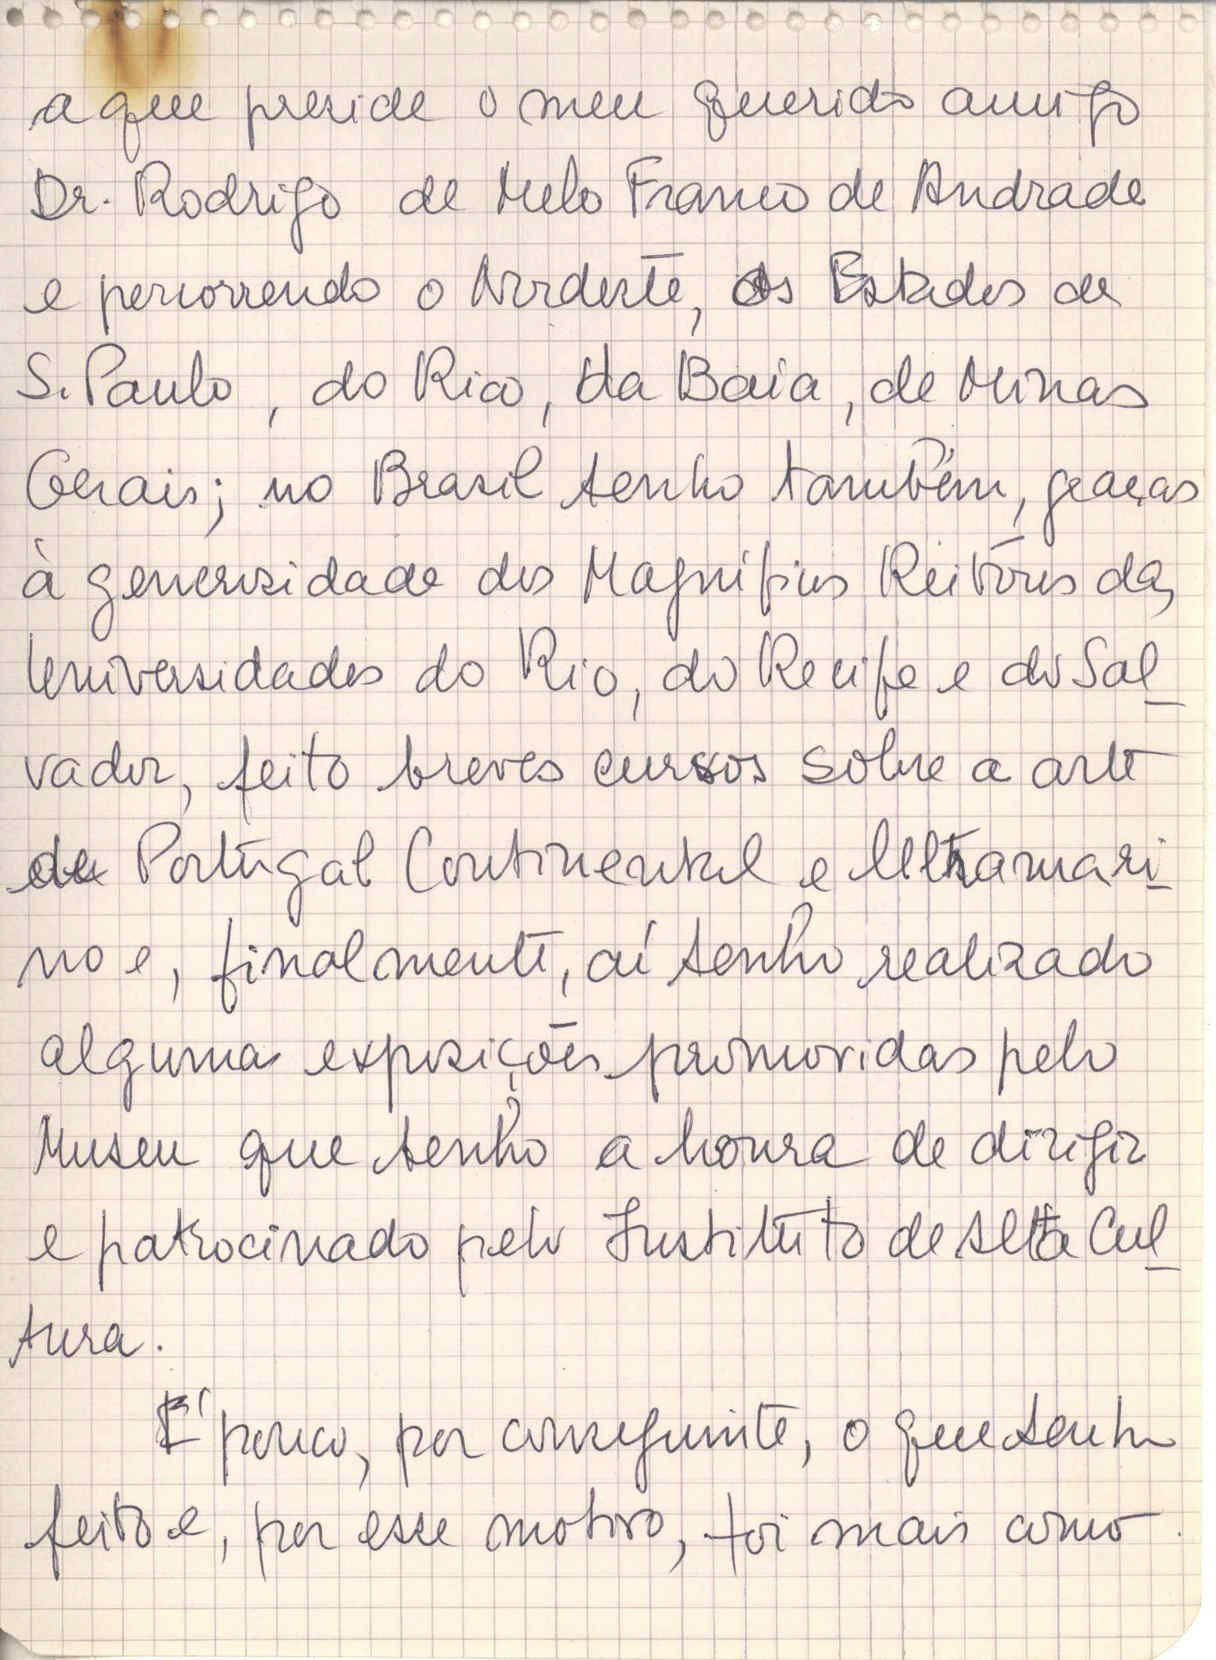 a que preside o meu querido amigo
Dr. Rodrigo de Melo Franco de Andrade
e percorrendo o Nordeste, os Estados de
S. Paulo, do Rio, da Baia, de Minas
Gerais; no Brasil tenho também, graças
à generosidade dos Magníficos Reitores das
Universidades do Rio, do Recife e do Sal_
vador, feito breves cursos sobre a arte
de Portugal Continental e Ultramari_
no e, finalmente, aí tenho realizado
algumas exposições promovidas pelo
Museu que tenho a honra de dirigir
e patrocinado pelo Instituto de Alta Cul_
tura.
É pouco, por conseguinte, o que tenho
feito e, por esse motivo, foi mais como